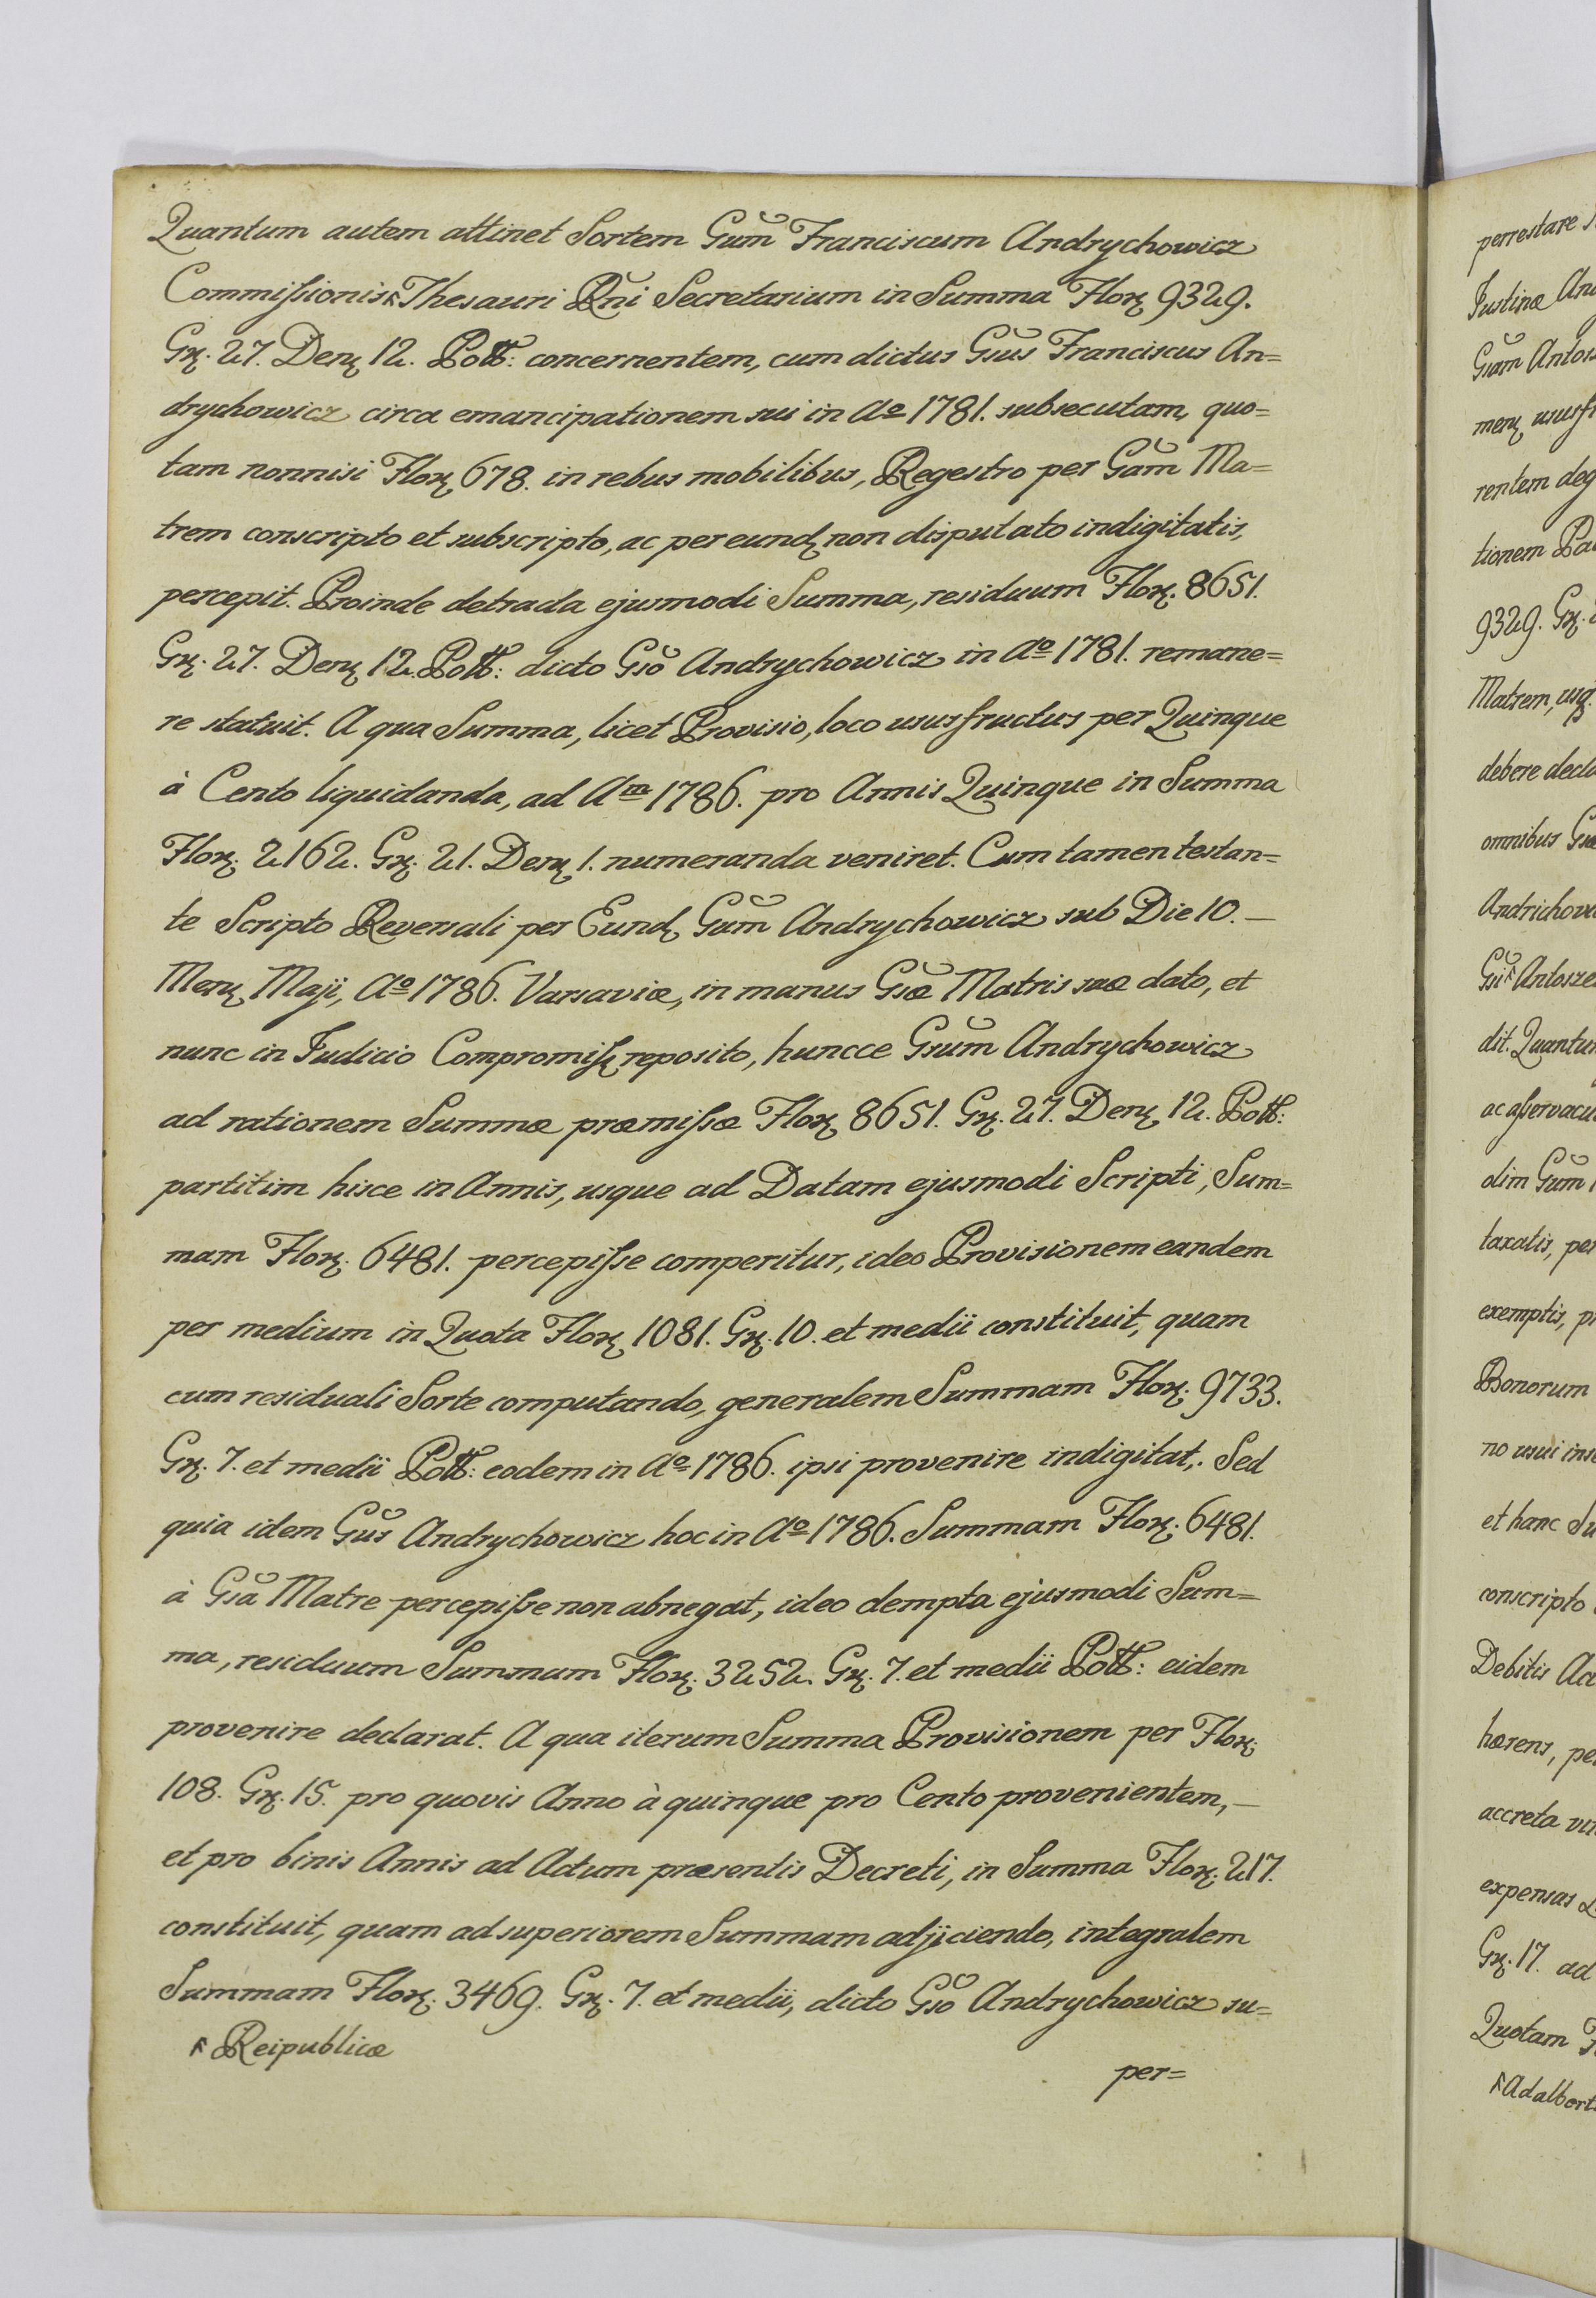 Quantum autem attinet Sortem Gum̃ Franciscum Andrychowicz
Commiſsionis ۸ Thesauri Rñi Secretarium in Summa Florꝫ 9329.
Grꝫ. 27. Denꝫ 12. Poll: concernentem, cum dictus Gsũs Franciscus An=
drychowicz circa emancipationem sui in Aº 1781. subsecutam, quo=
tam nonnisi Florꝫ 678. in rebus mobilibus, Regestro per Gam̃ Ma=
trem conscripto et subscripto, ac per eundꝫ non disputato indigitatis,
percepit. Proinde detracta ejusmodi Summa, residuum Florꝫ. 8651.
Grꝫ. 27. Denꝫ 12. Poll: dicto Gsõ Andrychowicz in Aº 1781. remane=
re statuit. A qua Summa, licet Provisio, loco ususfructus per Quinque
à Cento liquidanda, ad Aᵐ 1786. pro Annis Quinque in Summa
Florꝫ. 2162. Grꝫ. 21. Denꝫ 1. numeranda veniret. Cum tamen testan=
te Scripto Reversali per Eundꝫ Gum̃ Andrychowicz sub Die 10. —
Menꝫ Maji, Aº 1786. Varsaviæ, in manus Gsæ̃ Matris suæ dato, et
nunc in Judicio Compromiſsꝫ reposito, huncce Gsum̃ Andrychowicz
ad rationem Summæ præmiſsæ Florꝫ 8651. Grꝫ. 27. Denꝫ 12. Poll:
partitim hisce in Annis, usque ad Datam ejusmodi Scripti, Sum=
mam Florꝫ. 6481. percepiſse comperitur, ideo Provisionem eandem
per medium in Quota Florꝫ 1081. Grꝫ. 10. et medii constituit, quam
cum residuali Sorte computando, generalem Summam Florꝫ. 9733.
Grꝫ. 7. et medii Poll: eodem in Aº 1786. ipsi provenire indigitat,. Sed
quia idem Gũs Andrychowicz hoc in Aº 1786. Summam Florꝫ. 6481.
à Gsã Matre percepiſse non abnegat, ideo dempta ejusmodi Sum=
ma, residuum Summam Florꝫ. 3252. Grꝫ. 7. et medii Poll: eidem
provenire declarat. A qua iterum Summa Provisionem per Florꝫ.
108. Grꝫ. 15. pro quovis Anno à quinque pro Cento provenientem, —
et pro binis Annis ad Actum præsentis Decreti, in Summa Florꝫ. 217.
constituit, quam ad superiorem Summam adjiciendo, integralem
Summam Florꝫ. 3469. Grꝫ. 7. et medii, dicto Gsõ Andrychowicz su=
۸ Reipublicæ
per=
perrestare
Justinæ
Gsam̃
menꝫ
rentem
tionem
9329. Grꝫ.
Matrem,
debere
omnibus
Gsĩ ۸
dit. Quantum
ac
dim Gum̃
taxatis,
exemptis,
Bonorum
no usui
et hanc
conscripto
Debitis
hærens,
accreta
expensas
Grꝫ. 17. ad
Quotam